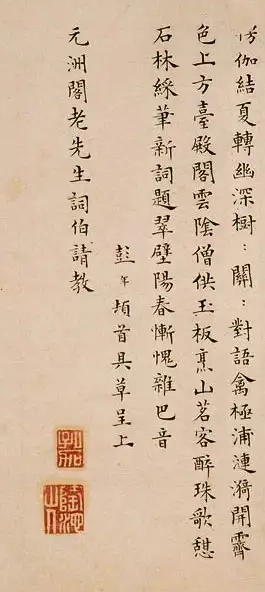 伽結夏轉幽深樹〻關〻對語禽極浦漣漪開霽
色上方臺殿閣雲陰僧供玉板烹山茗客醉珠歌憩
石林綵筆新詞題翠壁陽春慚愧雜巴音
彭年頓首具草呈上
元洲閣老先生詞伯請教
孔加
隆池山人